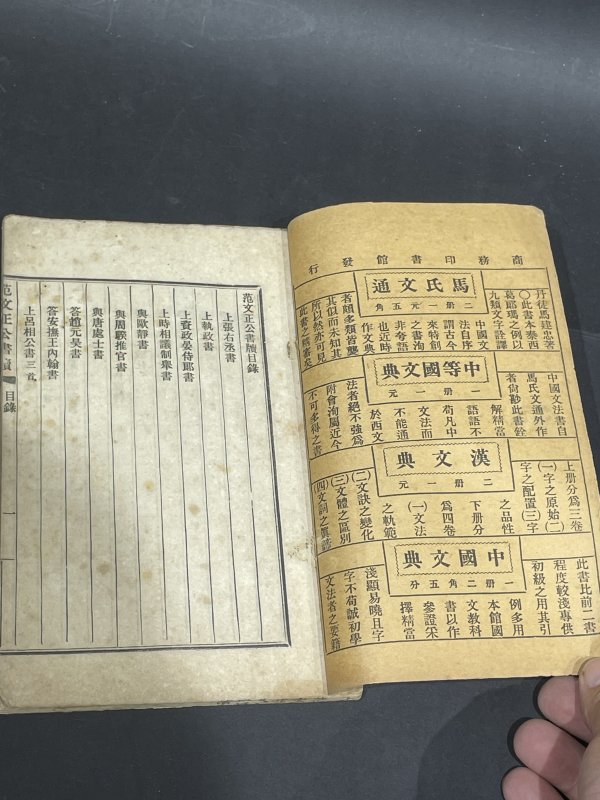 商務印書館發行
馬氏文通
二册一元五角
丹徒馬建忠著
〇此書本泰西
葛郎瑪之例以
九類文字詮譯
中國文
法自序
謂古今
來特創
之書洵
非夸語
也近時
作文典
者頗多類皆襲
其似而未知其
所以然亦可見
此書之稱善矣
中等國文典
一册一元
中國文法書自
馬氏文通外作
者尚尠此書詮
解精當
語語不
苟凡中
文法而
不能通
於西文
法者絕不強爲
附會洵屬近今
不可多得之書
漢文典
二册一元
上册分爲三卷
(一)字之原始(二)
字之配置(三)字
之品性
下册分
爲四卷
(一)文法
之軌範
(二)文訣之變化
(三)文體之區別
(四)文詞之眞諦
中國文典
一册二角五分
此書比前二書
程度較淺專供
初級之用其引
例多用
本館國
文教科
書以作
參證采
擇精當
淺顯易曉且字
字不苟誠初學
文法者之要籍
范文正公書牘目錄
上張右丞書
上執政書
上資政晏侍郎書
上時相議制舉書
與歐靜書
與周騤推官書
與唐處士書
答趙元昊書
答安撫王內翰書
上呂相公書三首
范文正公書牘 目錄 一